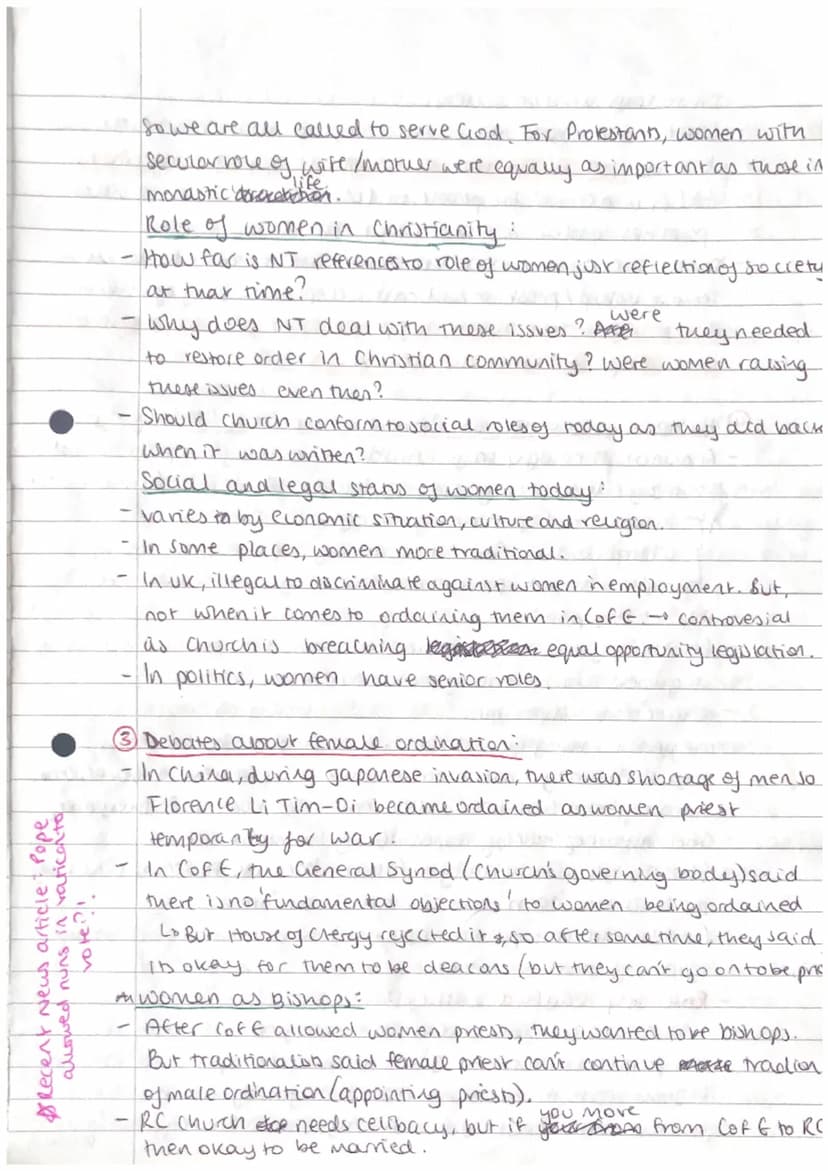 so we are all called to serve God. For Protestants, women with
secular role of wife/mother were equally as important as those in
monastic life.
Role of women in Christianity:
- How far is NT references to role of women just reflection of society
at that time?
- Why does NT deal with these issues? were they needed
to restore order in Christian community? Were women raising
these issues even then?
- Should church conform to social roles of today as they did back
when it was written?
Social and legal status of women today:
- varies by economic situation, culture and religion.
- In some places, women more traditional.
- In UK, illegal to discriminate against women in employment. But,
not when it comes to ordaining them in CofE → controversial
as church is breaching equal opportunity legislation.
- In politics, women have senior roles.
③ Debates about female ordination:
- In China, during Japanese invasion, there was shortage of men so
Florence Li Tim-Oi became ordained as women priest
temporarily for war.
- In CofE, the General Synod (Church's governing body) said
there is no 'fundamental objections' to women being ordained
↳ But House of Clergy rejected it & so after some time, they said
is okay for them to be deacons (but they can't go on to be pri
Women as Bishops:
- After CofE allowed women priests, they wanted to be bishops.
But traditionalists said female priest can't continue tradion
of male ordination (appointing priests).
- RC church needs celibacy, but if you move from CofE to RC
then okay to be married.
☆ Recent news article: Pope
allowed nuns in vatican to
vote?!